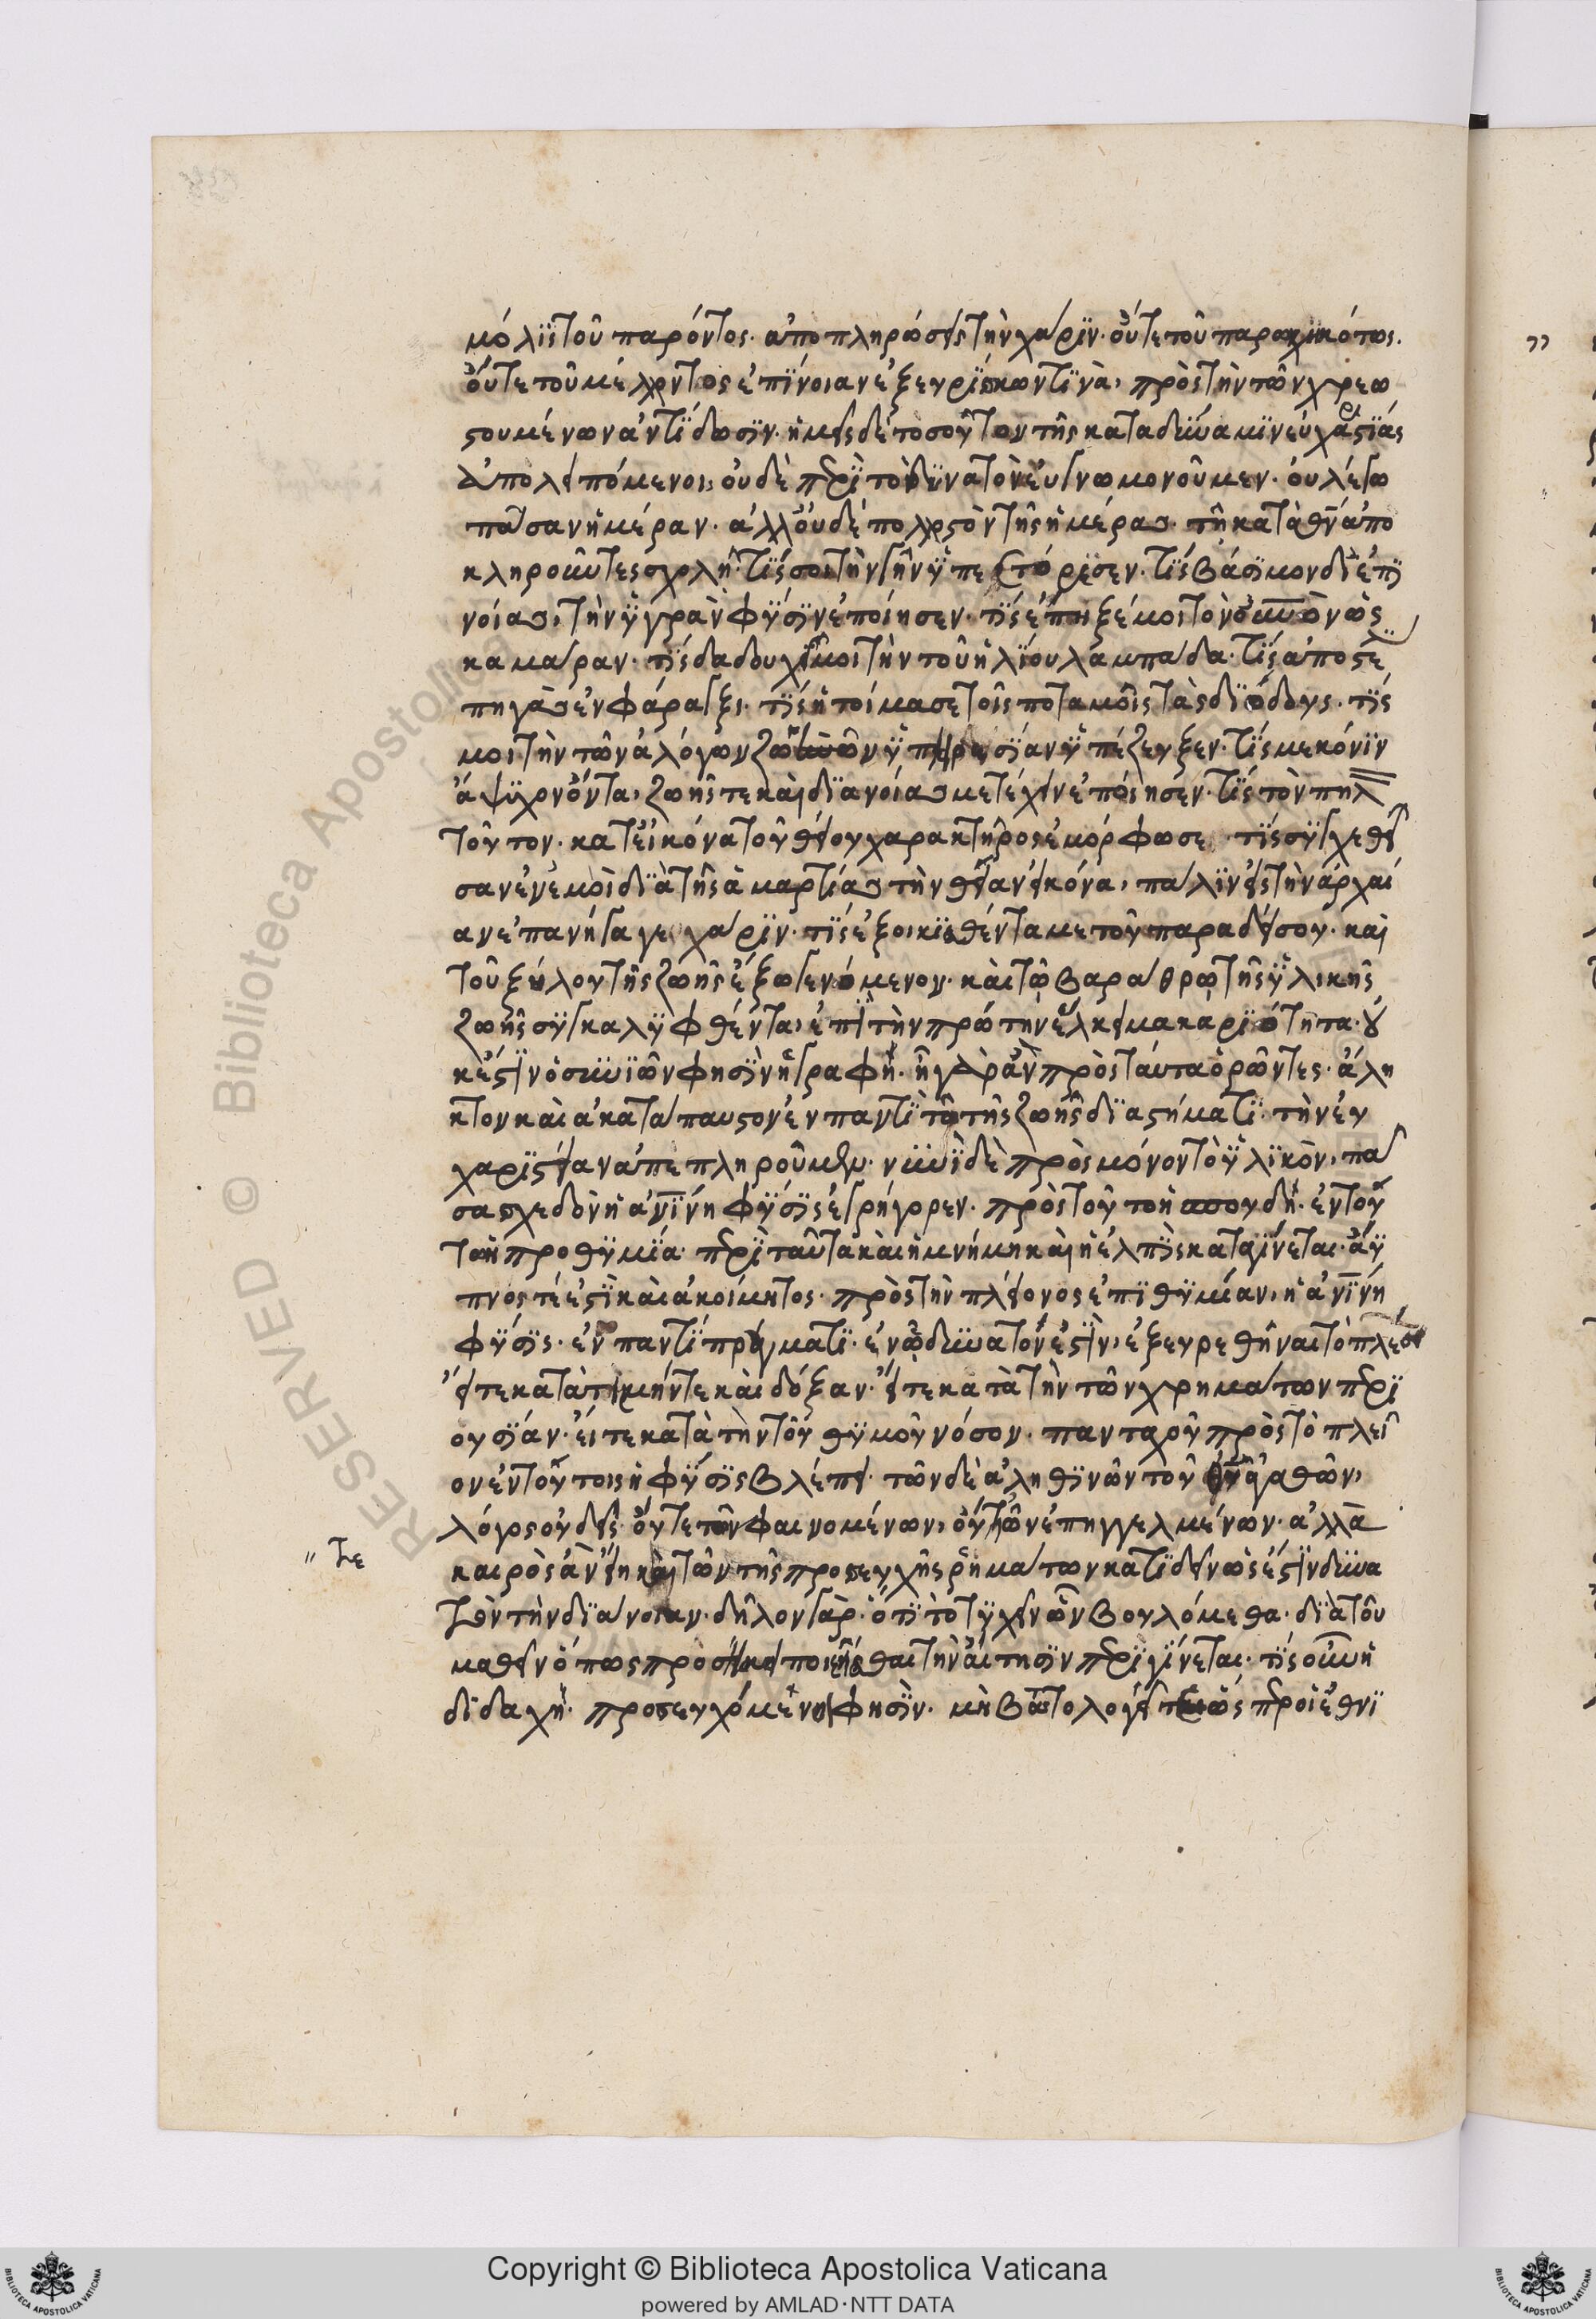 μόλις τοῦ παρόντος ἀποπληρώσεις τὴν χάριν· οὔτε τοῦ παρωχηκότος·
οὔτε τοῦ μέλλοντος ἐπίνοιαν ἐξευρίσκων τινὰ, πρὸς τὴν τῶν χρεω
στουμένων ἀντίδωσιν· ἡμεῖς δὲ τοσοῦτον τῆς κατὰ δύναμιν εὐχαριστίας
ἀπολειπόμενοι, οὐδὲ περὶ τὸ δυνατὸν εὐγνωμονοῦμεν· οὐ λέγω
πᾶσαν ἡμέραν· ἀλλ' οὐδὲ πολλοστὸν τῆς ἡμέρας· τῇ κατὰ θν ἀπο
κληροῦντες σχολῇ· τίς μοι τὴν γῆν ὑπεστόρεσεν· τίς βάσιμον δι' ἐπι
νοίας, τὴν ὑγρὰν φύσιν ἐποίησεν· τίς ἔπηξέ μοι τὸν οὐνον ὡς
καμάραν· τίς δᾳδουχεῖ μοι τὴν τοῦ ἡλίου λαμπάδα· τίς ἀποστέλ
πηγὰς ἐν φάραγξι· τίς ἡτοίμασε τοῖς ποταμοῖς τὰς διόδους· τίς
μοι τὴν τῶν ἀλόγων ζώων ὑπηρεσίαν ὑπέζευξεν· τίς με κόνιν
ἄψυχον ὄντα, ζωῆς τε καὶ διανοίας μετέχειν ἐποίησεν· τίς τὸν πηλ
τοῦτον· κατ' εἰκόνα τοῦ θείου χαρακτῆρος ἐμόρφωσε· τίς συγχεθεῖ
σαν ἐν ἐμοὶ διὰ τῆς ἁμαρτίας τὴν θείαν εἰκόνα, πάλιν εἰς τὴν ἀρχαί
αν ἐπανήγαγε χάριν· τίς ἐξοικισθέντα με τοῦ παραδείσου· καὶ
τοῦ ξύλου τῆς ζωῆς ἔξω γενόμενον· καὶ τῷ βαράθρῳ τῆς ὑλικῆς
ζωῆς συγκαλυφθέντα, ἐπὶ τὴν πρώτην ἕλκει μακαριότητα· οὐ
κ ἔστιν ὁ συνιῶν φησὶν ἡ γραφή· ἦ γὰρ ἂν πρὸς ταῦτα ὁρῶντες· ἄλη
κτον καὶ ἀκατάπαυστον ἐν παντὶ τῷ τῆς ζωῆς διαστήματι· τὴν εὐ
χαριστείαν ἀπεπληροῦμεν· νυνὶ δὲ πρὸς μόνον τὸ ὑλικὸν, πᾶ
σα σχεδὸν ἡ ἀνίνη φύσις ἐγρήγορεν· πρὸς τοῦτο ἡ σπουδή· ἐν τού
τῳ ἡ προθυμία· περὶ ταῦτα καὶ ἡ μνήμη καὶ ἡ ἐλπὶς καταγίνεται· ἄϋ
πνος τέ ἐστι καὶ ἀκοίμητος· πρὸς τὴν πλείονος ἐπιθυμίαν, ἡ ἀνίνη
φύσις· ἐν παντὶ πράγματι· ἐν ᾧ δυνατόν ἐστιν, ἐξευρεθῆναι τὸ πλέον
εἴτε κατὰ τιμήν τε καὶ δόξαν· εἴτε κατὰ τὴν τῶν χρημάτων περι
ουσίαν· εἴτε κατὰ τὴν τοῦ θυμοῦ νόσον· πανταχοῦ πρὸς τὸ πλεῖ
ον ἐν τούτοις ἡ φύσις βλέπει· τῶν δὲ ἀληθινῶν τοῦ θυ ἀγαθῶν,
λόγος οὐδείς· οὔτε τῶν φαινομένων, οὔτε τῶν ἐπηγγελμένων· ἀλλὰ
καιρὸς ἂν εἴη καὶ τῶν τῆς προσευχῆς ῥημάτων κατιδεῖν ὡς ἔστιν δυνα
τὸν τὴν διάνοιαν· δῆλον γὰρ· ὅτι τὸ τυχεῖν ὧν βουλόμεθα· διὰ τοῦ
μαθεῖν ὅπως προσήκει ποιεῖσθαι τὴν αἴτησιν περιγίνεται· τίς οὖν ἡ
διδαχή· προσευχόμενοι φησὶν· μὴ βαττολογεῖτε ὡς περ οἱ ἐθνι